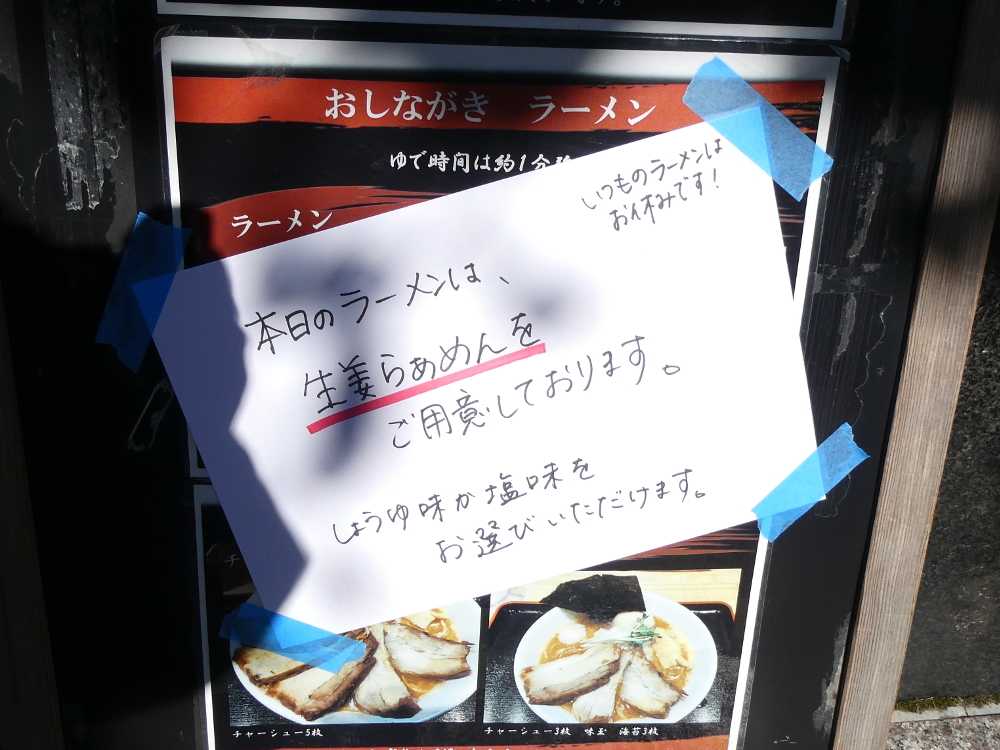 おしながき ラーメン
ゆで時間は約1分
ラーメン
いつものラーメンは
お休みです!
本日のラーメンは、
生姜らぁめんを
ご用意しております。
しょうゆ味か塩味を
お選びいただけます。
チャーシュー5枚
チャーシュー3枚 味玉 海苔3枚